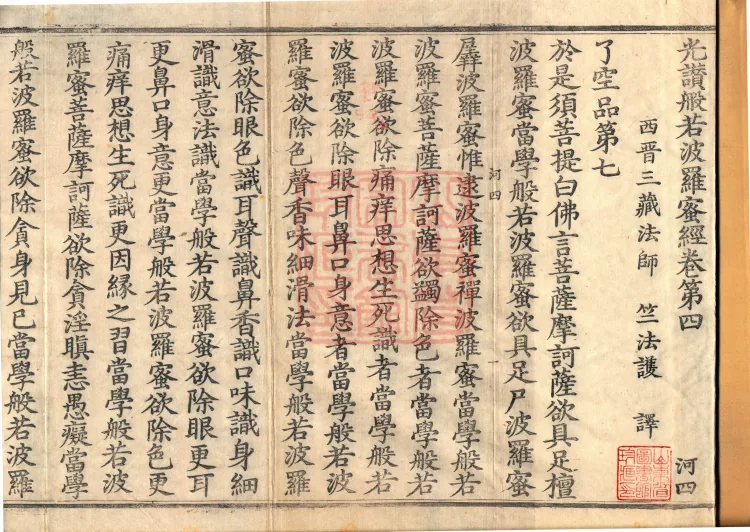 光讃般若波羅蜜經卷第四
西晋三藏法師 竺法護 譯 河四
了空品第七
於是須菩提白佛言菩薩摩訶薩欲具足檀
波羅蜜當學般若波羅蜜欲具足尸波羅蜜
羼波羅蜜惟逮波羅蜜禪波羅蜜當學般若
河四 一
波羅蜜菩薩摩訶薩欲蠲除色者當學般若
波羅蜜欲除痛痒思想生死識者當學般若
波羅蜜欲除眼耳鼻口身意者當學般若波
羅蜜欲除色聲香味細滑法當學般若波羅
蜜欲除眼色識耳聲識鼻香識口味識身細
滑識意法識當學般若波羅蜜欲除眼更耳
更鼻口身意更當學般若波羅蜜欲除色更
痛痒思想生死識更因緣之習當學般若波
羅蜜菩薩摩訶薩欲除貪淫瞋恚愚癡當學
般若波羅蜜欲除貪身見已當學般若波羅